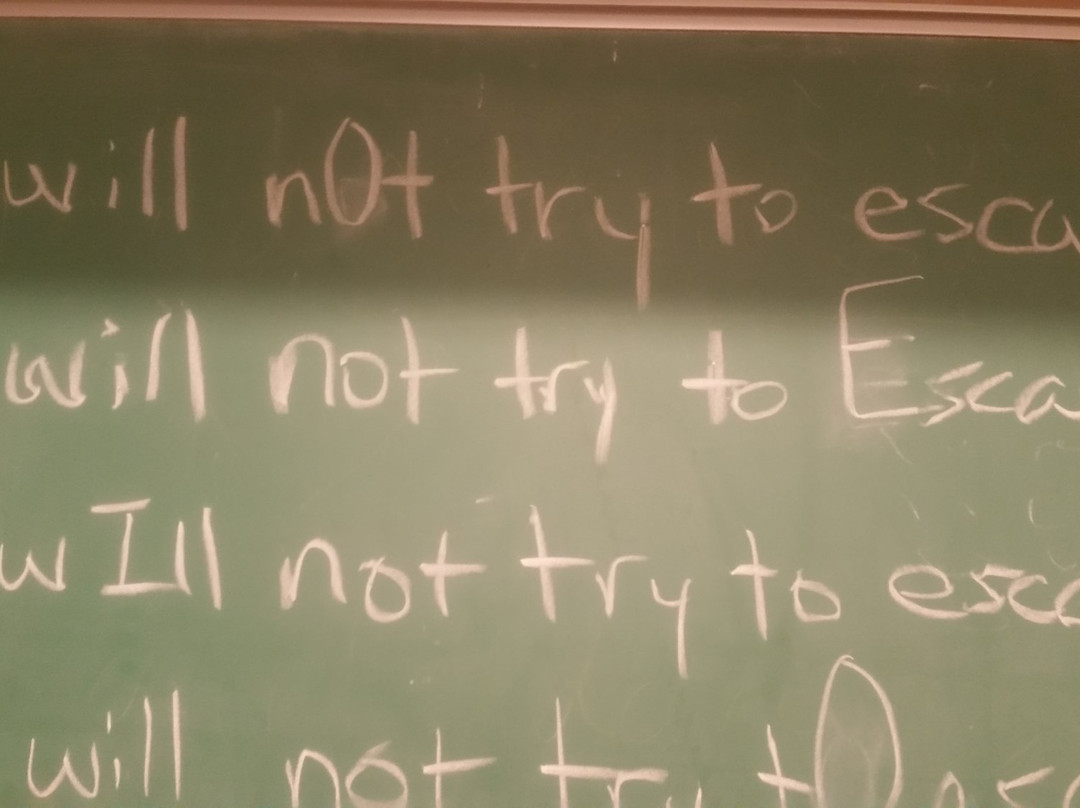 will nOt try to esca
will not try to Esca
wIll not try to esca
will not try tO esc